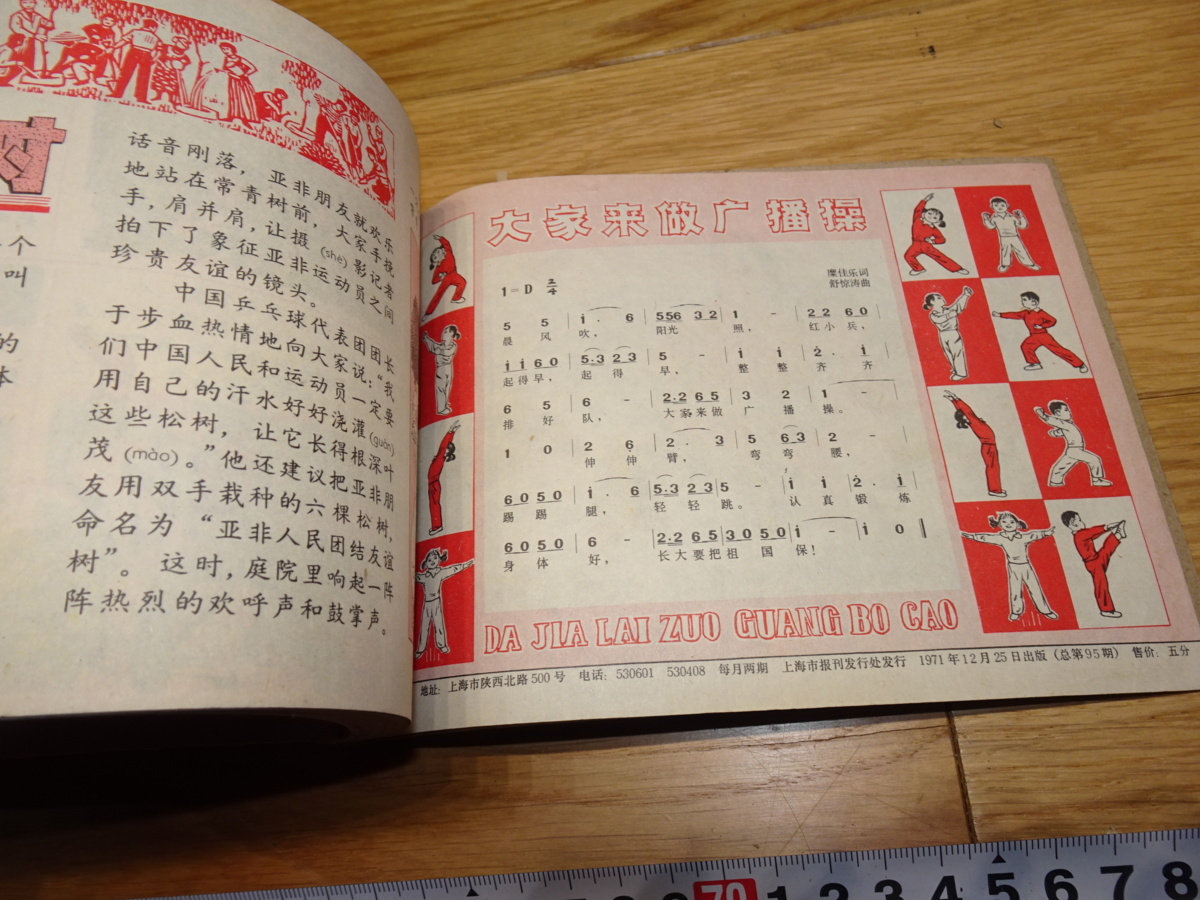 个
叫
的
体
话音刚落，亚非朋友就欢乐
地站在常青树前，大家手挽
手，肩并肩，让摄(shè)影记者
拍下了象征亚非运动员之间
珍贵友谊的镜头。
中国乒乓球代表团团长
于步血热情地向大家说：“我
们中国人民和运动员一定要
用自己的汗水好好浇灌(guàn)
这些松树，让它长得根深叶
茂(mào)。”他还建议把亚非朋
友用双手栽种的六棵松树，
命名为“亚非人民团结友谊
树”。这时，庭院里响起一阵
阵热烈的欢呼声和鼓掌声。
大家来做广播操
1=D 2/4
糜佳乐词
舒惊涛曲
5 5 | i· 6 | 556 32 | 1 - | 22 60 |
晨风吹，阳光照，红小兵，
i i 6 0 | 5·3 2 3 | 5 - | i i | 2· i |
起得早，起得早，整整齐齐
6 5 | 6 - | 2·2 65 | 3 2 | 1 - |
排好队，大家来做广播操。
1 0 | 2 6 | 2· 3 | 5 63 | 2 - |
伸伸臂，弯弯腰，
60 50 | i· 6 | 5·3 23 | 5 - | i i | 2· i |
踢踢腿，轻轻跳。认真锻炼
60 50 | 6 - | 2·2 65 | 30 50 | i - | i 0 ‖
身体好，长大要把祖国保！
DA JIA LAI ZUO GUANG BO CAO
地址：上海市陕西北路500号 电话：530601 530408 每月两期 上海市报刊发行处发行 1971年12月25日出版（总第95期） 售价：五分
70 1 2 3 4 5 6 7 8